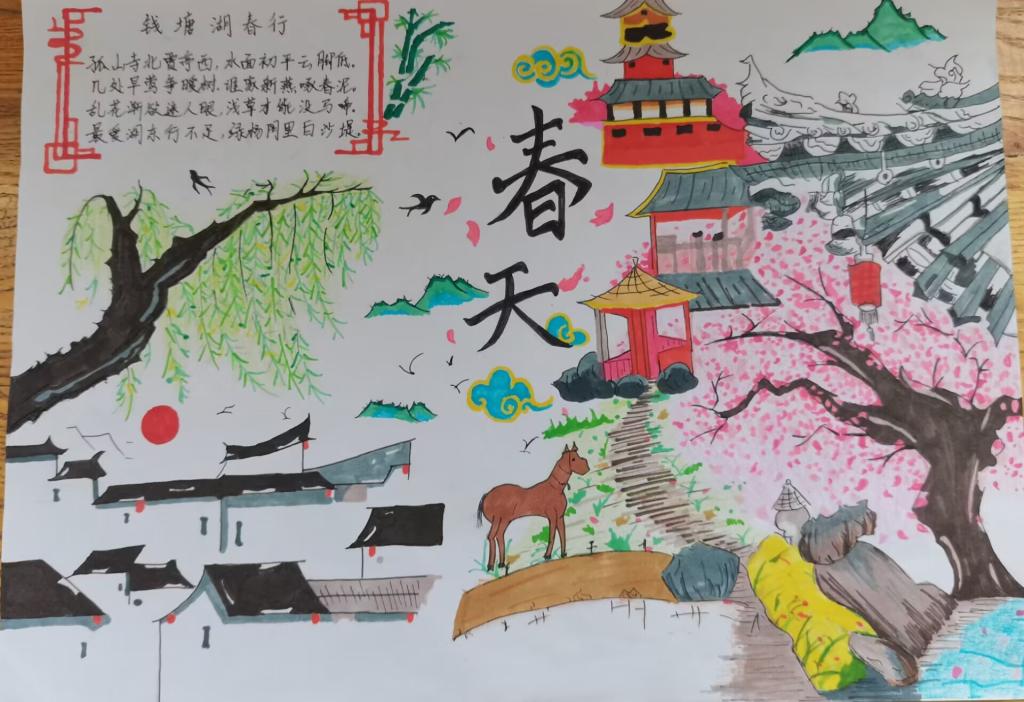 钱塘湖春行
孤山寺北贾寺西,水面初平云脚低。
几处早莺争暖树,谁家新燕啄春泥。
乱花渐欲迷人眼,浅草才能没马啼。
最爱湖东行不足,绿杨阴里白沙堤。
春天